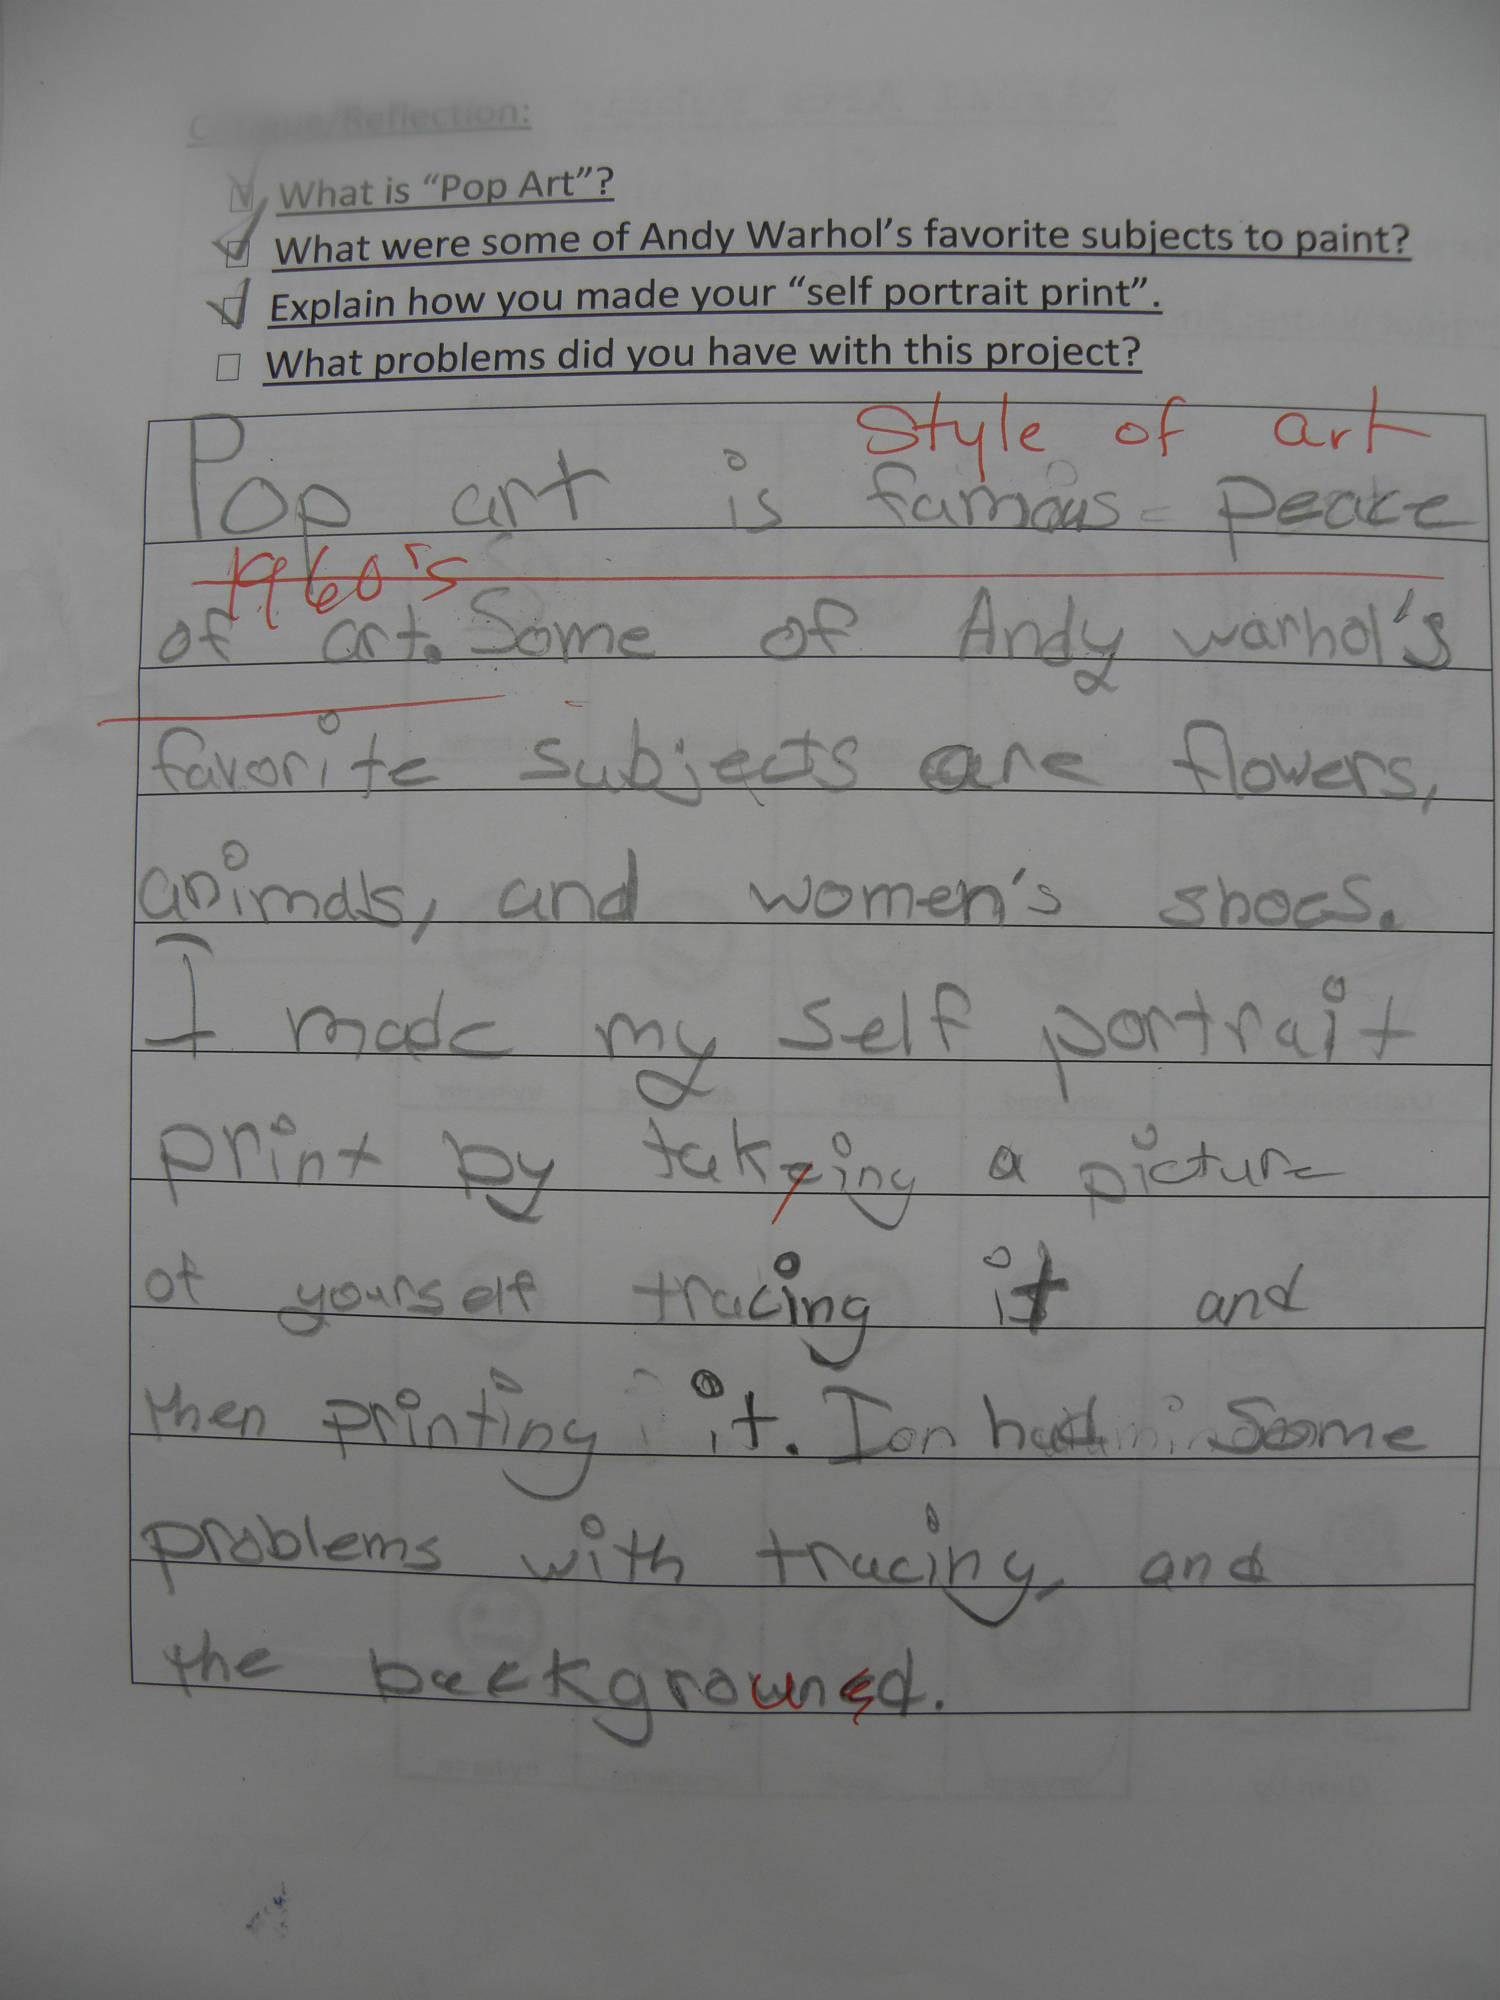 Critique/Reflection:
What is “Pop Art”?
What were some of Andy Warhol’s favorite subjects to paint?
Explain how you made your “self portrait print”.
What problems did you have with this project?
Style of art
Pop art is famous peace
1960's
of art. Some of Andy warhol's
favorite subjects are flowers,
animals, and women's shoes.
I made my self portrait
print by takeing a picture
of yourself tracing it and
then printing it. I had some
problems with tracing, and
the background.